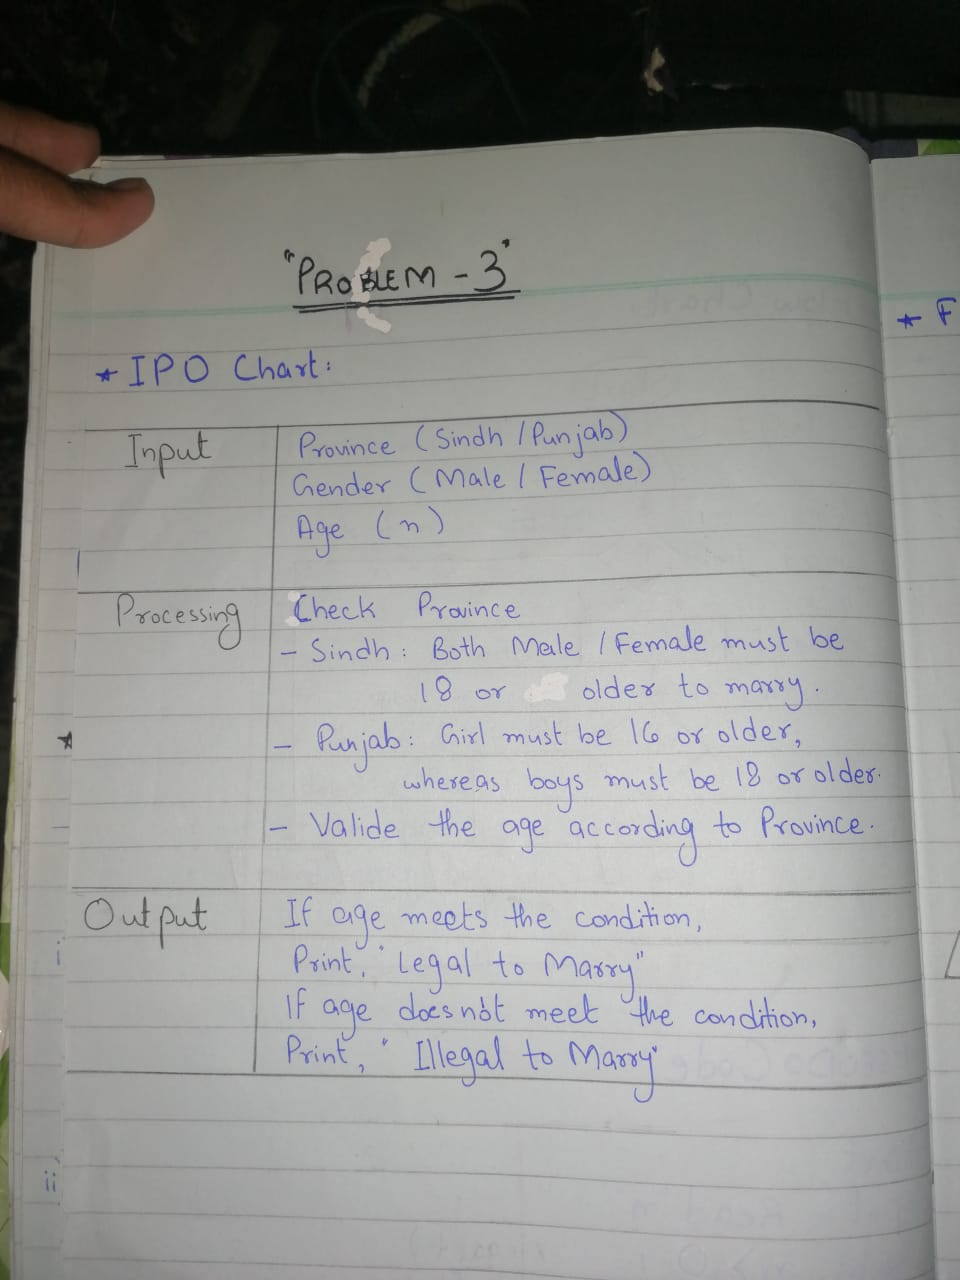 "PROBLEM - 3"
* IPO Chart:
Input
Province (Sindh / Punjab)
Gender (Male / Female)
Age (n)
Processing
Check Province
- Sindh: Both Male / Female must be
18 or older to marry.
- Punjab: Girl must be 16 or older,
whereas boys must be 18 or older.
- Valide the age according to Province.
Output
If age meets the condition,
Print, "Legal to Marry"
If age does not meet the condition,
Print, "Illegal to Marry"
* F
*
i
ii